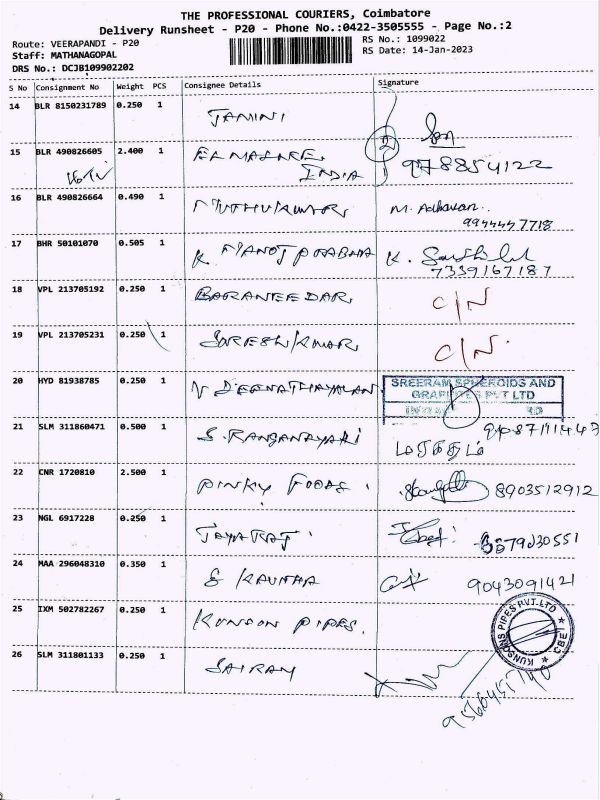 THE PROFESSIONAL COURIERS, Coimbatore
Delivery Runsheet - P20 - Phone No.:0422-3505555 - Page No.:2
Route: VEERAPANDI - P20
RS No.: 1099022
Staff: MATHANAGOPAL
RS Date: 14-Jan-2023
DRS No.: DCJB109902202
S No Consignment No Weight PCS Consignee Details Signature
14 BLR 8150231789 0.250 1
15 BLR 490826605 2.400 1
INDIA 978854122
16 BLR 490826664 0.490 1 MUTHUKUMAR M. Adhavan
9944447718
17 BHR 50101070 0.505 1 K MANOJ PRABHA K.
7339167187
18 VPL 213705192 0.250 1 BARANEEDAR C/N
19 VPL 213705231 0.250 1 SURESH KUMAR C/N
20 HYD 81938785 0.250 1 V DEENATHAYALAN SREERAM SPHEROIDS AND
GRAPHITES PVT LTD
21 SLM 311860471 0.500 1 S. RANGANAYAKI
22 CNR 1720810 2.500 1 PINKY FOODS 8903512912
23 NGL 6917228 0.250 1 JAYARAJ
24 MAA 296048310 0.350 1 S KAVITHA 9043091421
25 IXM 502782267 0.250 1 KUNSON PIPES. KUNSONS PIPES PVT.LTD CBE
26 SLM 311801133 0.250 1 SAIRAM